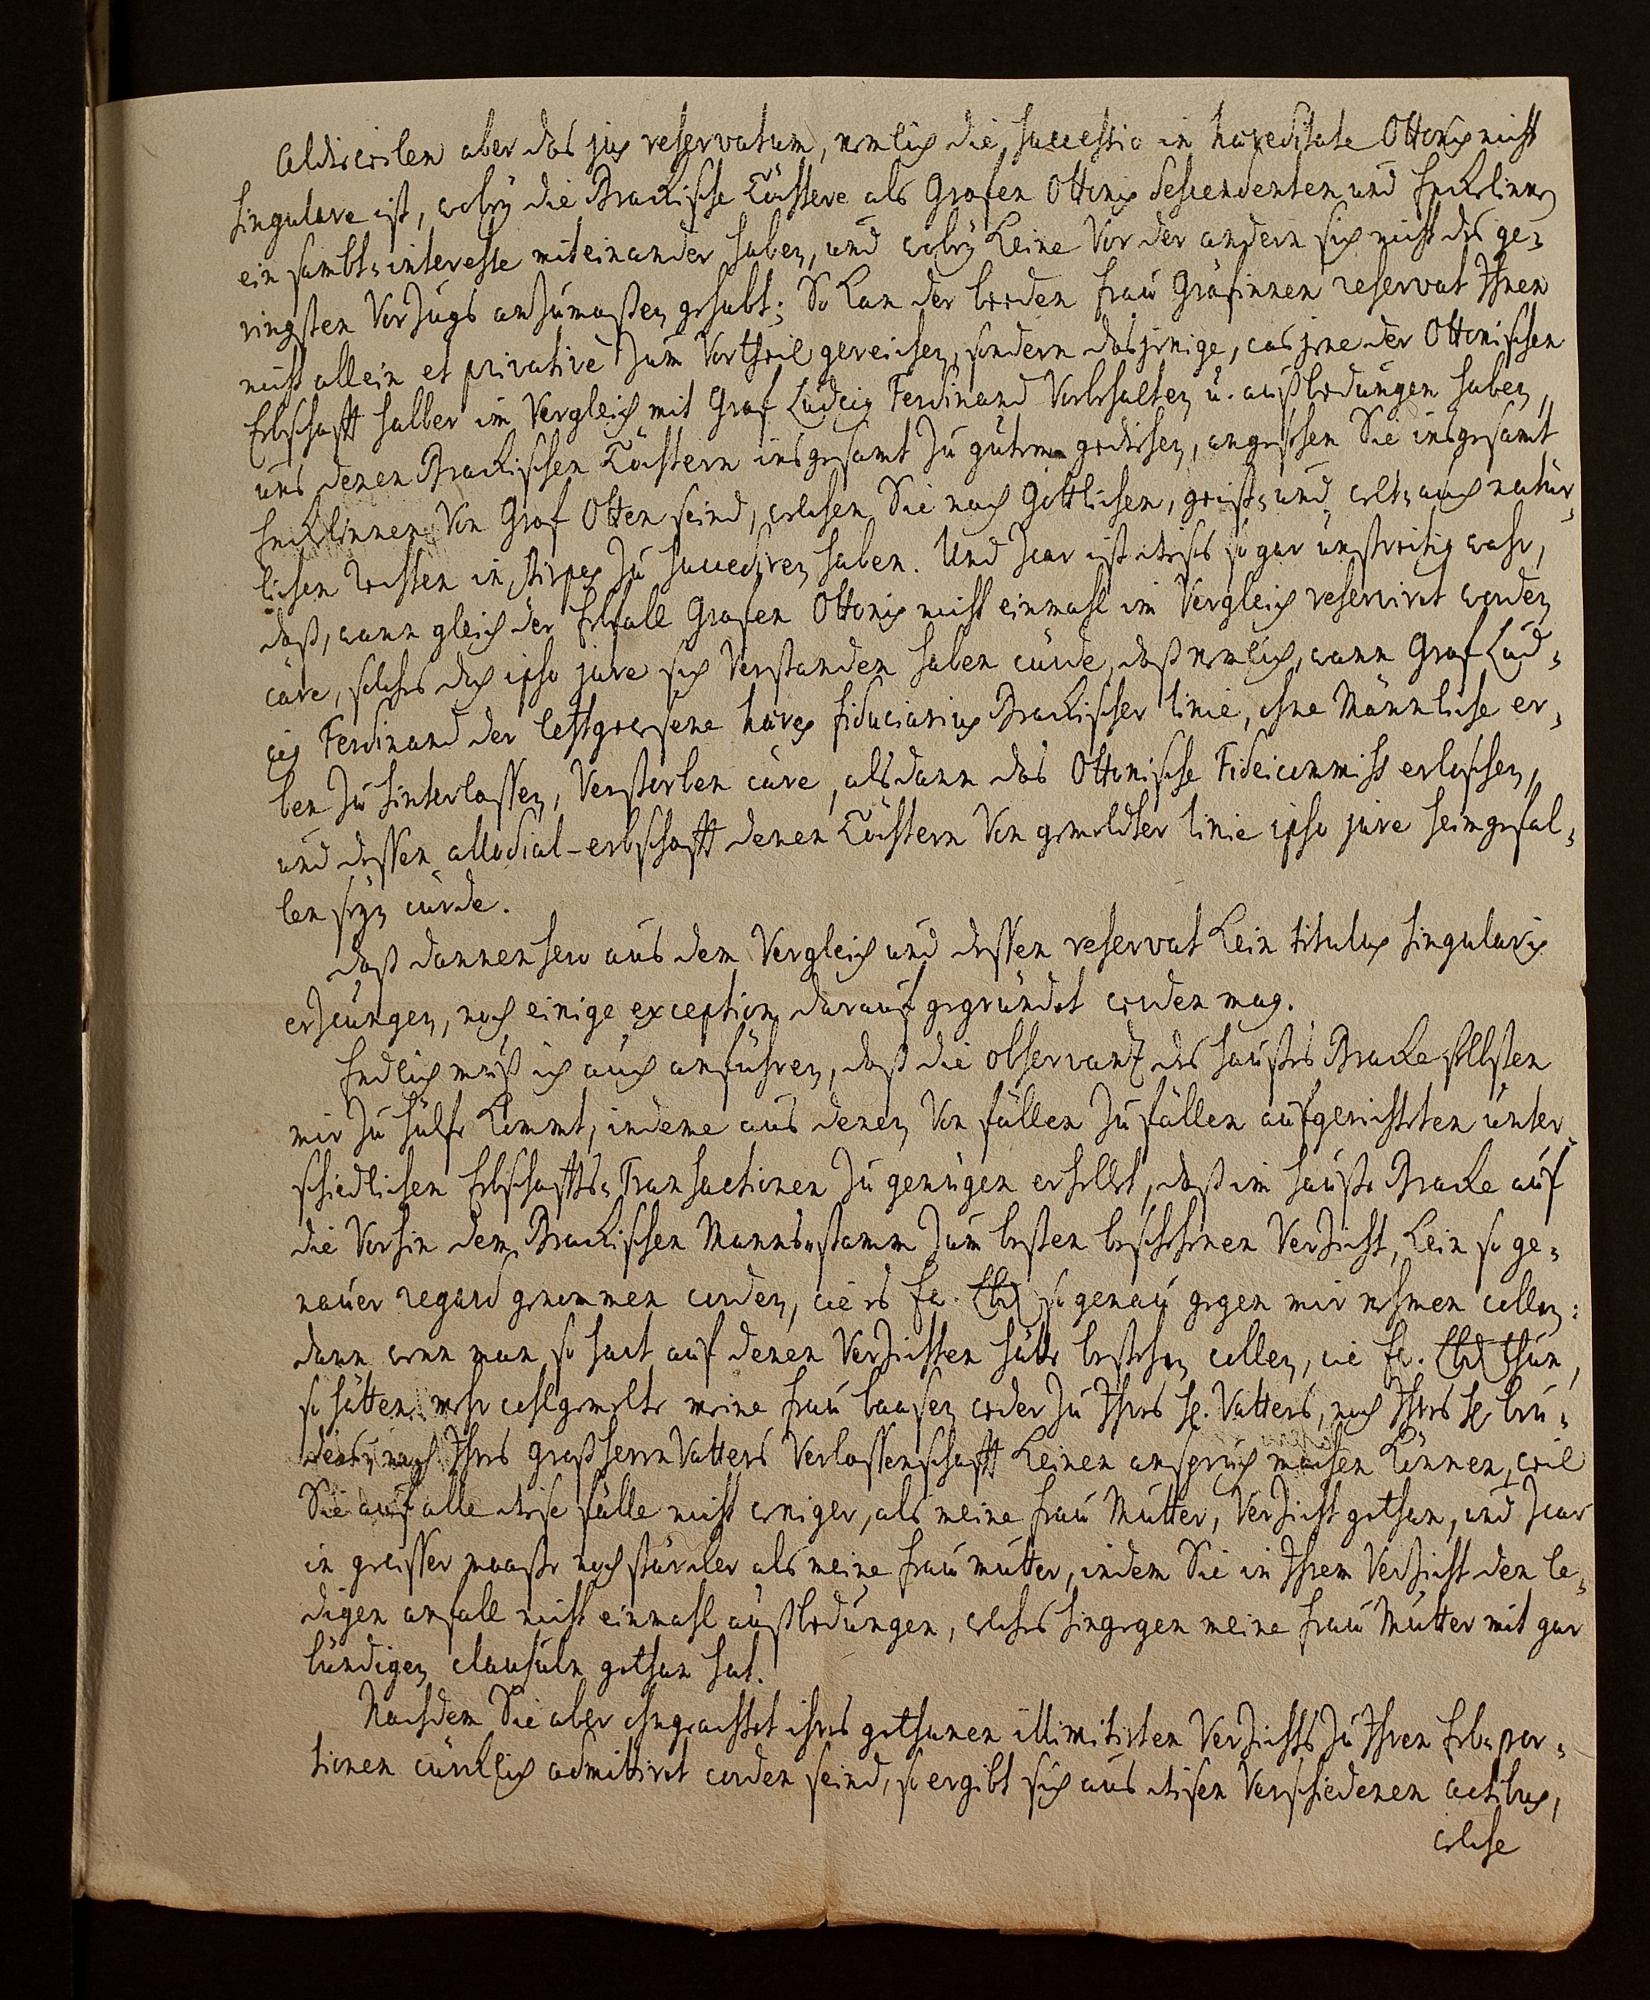 Aldieweilen aber das jus reservatum, nemlich die successio in haereditate Ottonis nicht
singulare ist, wobey die Brackische Töchtere als Grafen Ottonis descendenten und Enckelinnen
ein sambt-interesse miteinander haben, und wobey keine Vor der andern sich nicht des ge-
ringsten Vorzugs anzumaßen gehabt; So kan der beeden Frau Gräfinnen reservat Ihnen
nicht allein et privativè zum Vortheil gereichen, sondern dasjenige, was jene der Ottonischen
Erbschafft halber im Vergleich mit Graf Ludwig Ferdinand Vorbehalten u. außbedungen haben,
muß denen Brackischen Töchtern insgesamt zu gutem gedeihen, angesehen Sie insgesamt
Enckelinnen Von Graf Otten seind, welchen Sie nach Göttlichen, geist- und welt- auch natür-
lichen rechten in stirpes zu succediren haben. Und zwar ist dieses so gar unstreitig wahr,
daß, wann gleich der Erbfall Grafen Ottonis nicht einmahl im Vergleich reservirt worden
wäre, solches doch ipso jure sich Verstanden haben würde, daß nemlich, wann Graf Lud-
wig Ferdinand der letztgewesene haeres fiduciarius Brackischer linie, ohne Männliche er-
ben zu hinterlassen, Verstorben wäre, alsdann das Ottonische Fideicommiss erloschen,
und dessen allodial-erbschafft denen Töchtern Von gemeldter linie ipso jure heimgefal-
len seyn würde.
Daß dannenhero aus dem Vergleich und dessen reservat kein titulus singularis
erzwungen, noch einige exception darauf gegründet werden mag.
Endlich muß ich auch anführen, daß die observantz des haußes Bracke selbsten
mir zu hülfe kommt, indeme aus denen Von fällen zu fällen aufgerichteten unter-
schiedlichen Erbschaffts-Transactionen zu genügen erhellet, daß im hauße Bracke auf
die Vorhin dem Brackischen Manns-stamm zum besten beschehenen Verzicht, kein so ge-
nauer regard genommen worden, wie es Ew. Lbd so genau gegen mir nehmen wollen:
dann wenn man so hart auf denen Verzichten hätte bestehen wollen, wie Ew. Lbd thun,
so hätten mehr wohlgemelte meine Frau baasen weder zu Ihres H. Vatters, noch Ihres H. bru-
ders, noch Ihres großherrn Vatters Verlassenschafft keinen anspruch machen können, weil
Sie auf alle diese fälle nicht weniger, als meine Frau Mutter, Verzicht gethan, und zwar
in gewisser maaße noch stärcker als meine Frau Mutter, indem Sie in Ihrem Verzicht den le-
digen anfall nicht einmahl außbedungen, welches hingegen meine Frau Mutter mit gar
bündigen clausuln gethan hat.
Nachdem Sie aber ohngeachtet ihres gethanen illimitirten Verzichts zu Ihren Erb-por-
tionen würcklich admittiret worden seind, so ergibt sich aus diesen Verschiedenen actibus,
welche